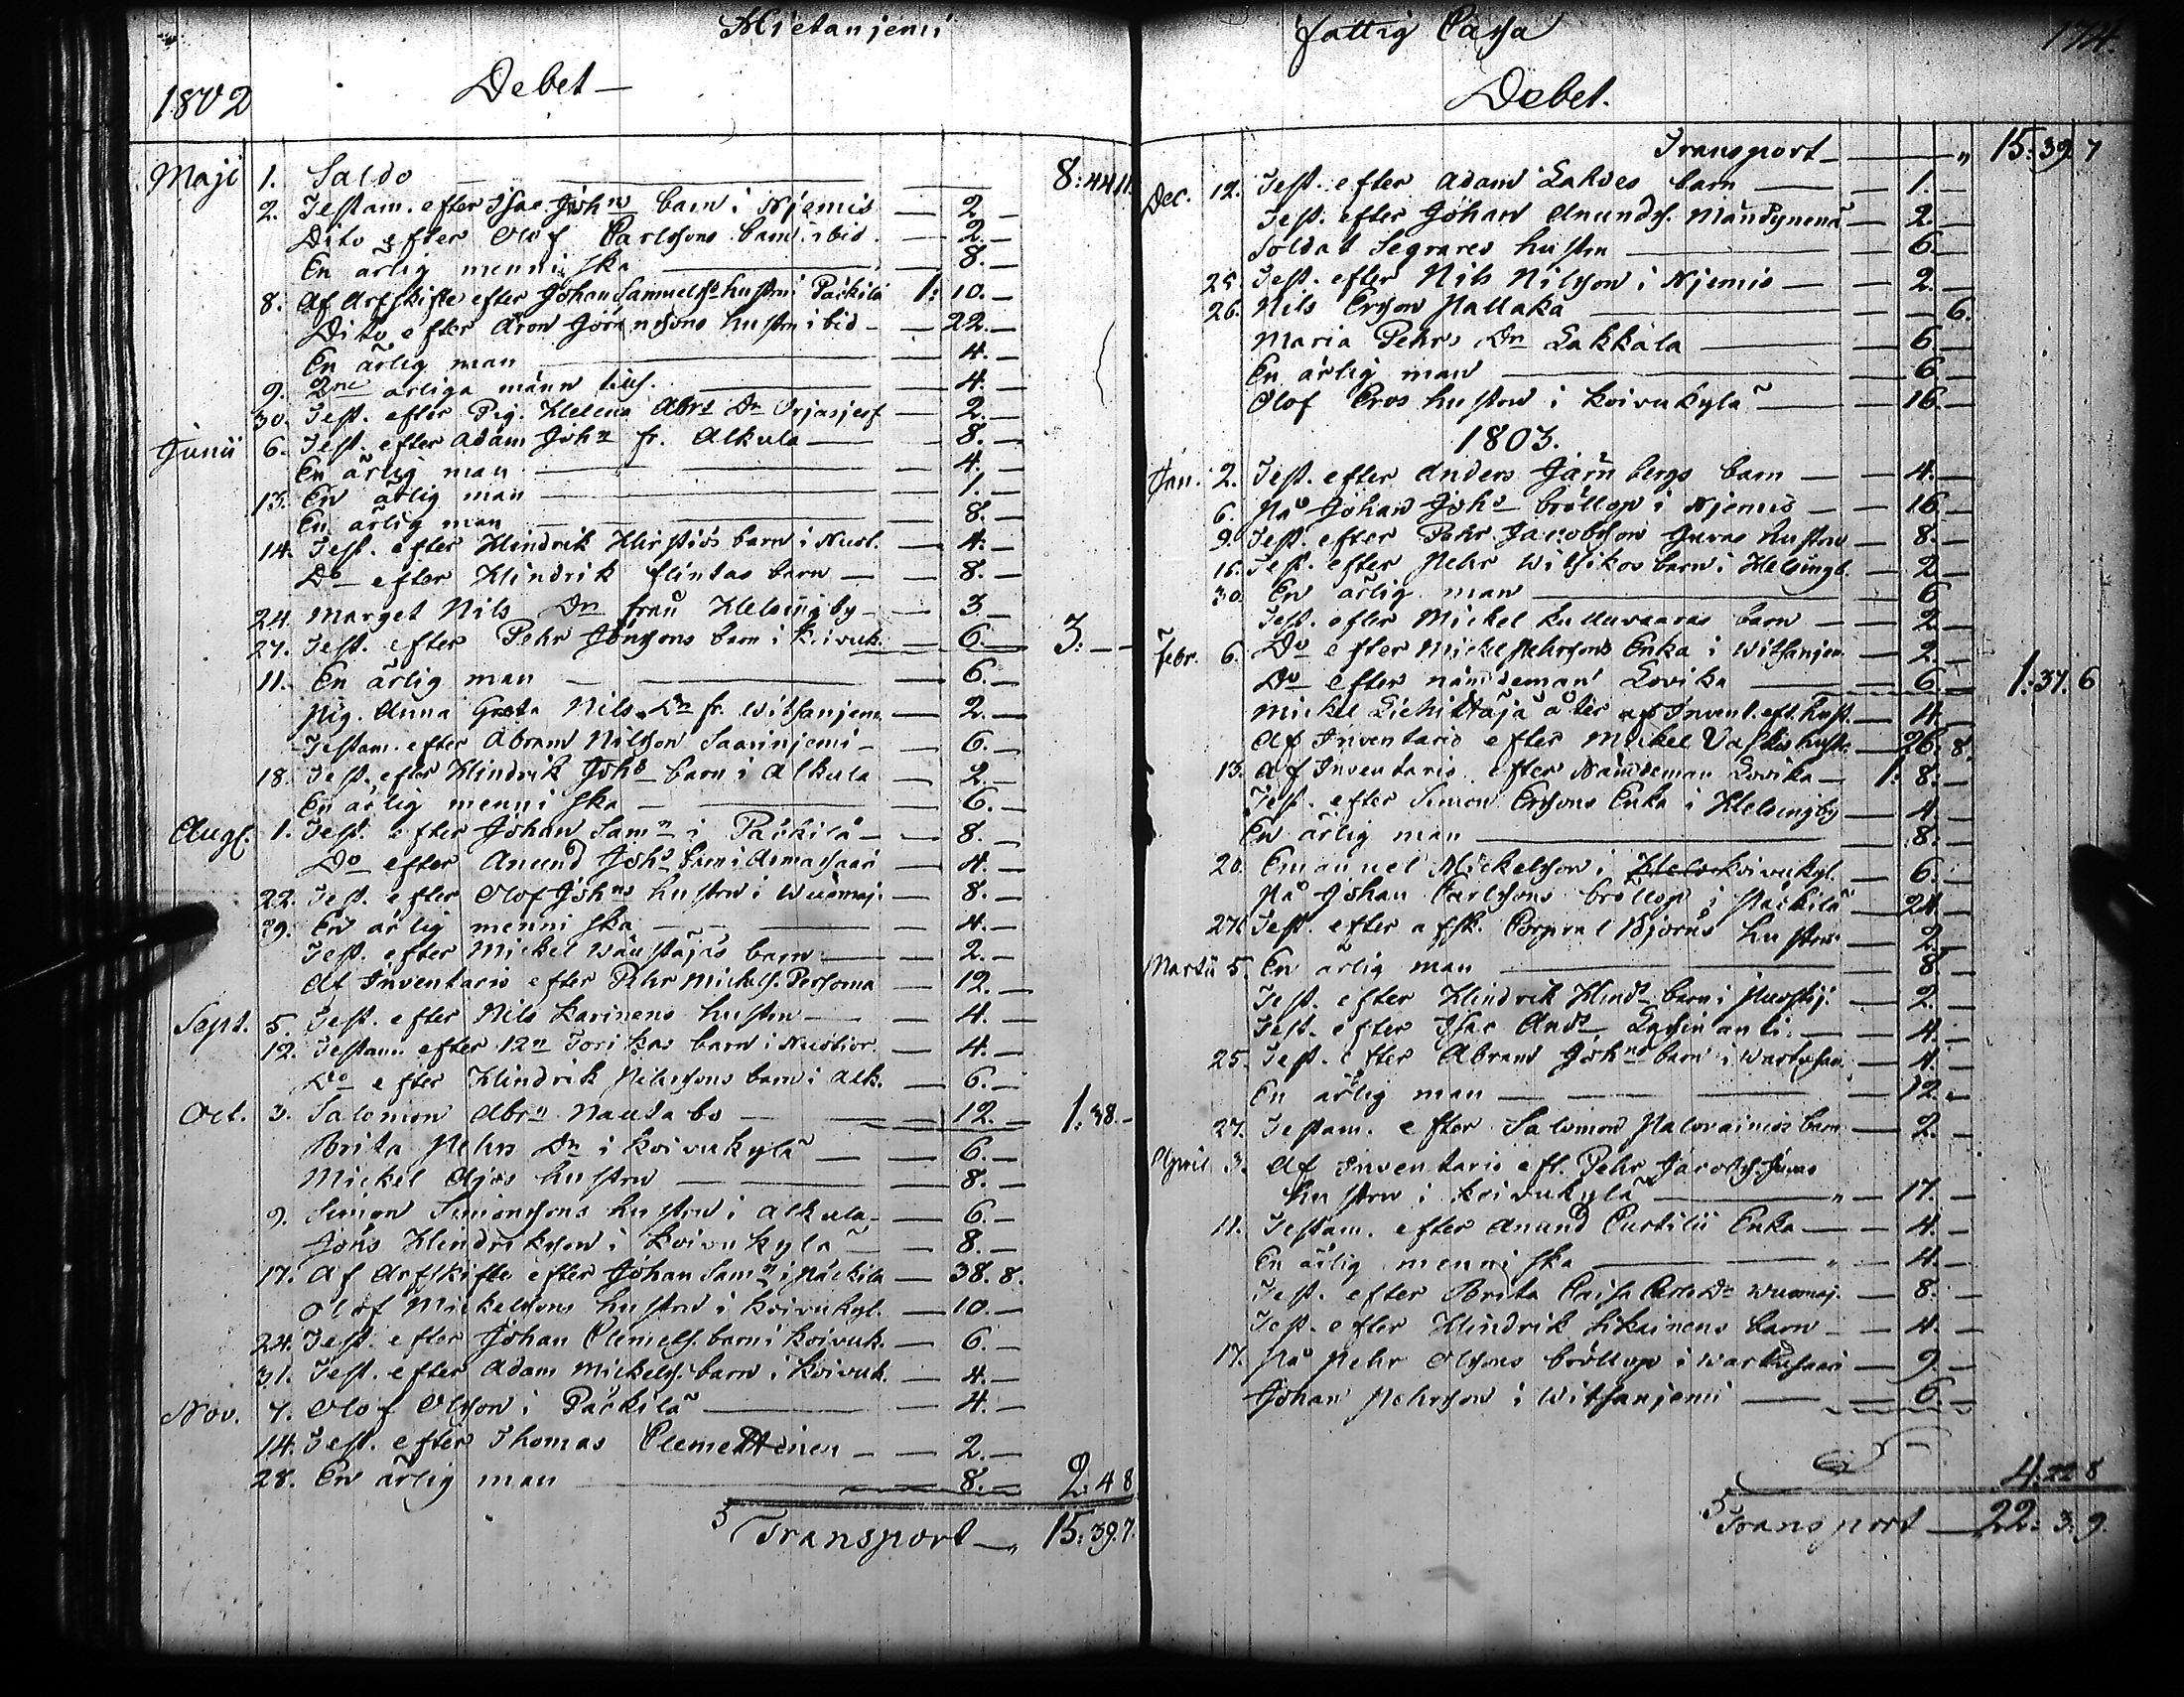 Hietanjemi
1802
Debet
Maji 1. Saldo 8: 44 11.
2. Testam. efter Isac Johns barn i Njemis 2
Dito efter Olof Carlssons barn ibid. 2.
En ärlig menniska 8.
8. Af Arfskifte efter Johan Samuelss hustru i Päckilä 1: 10.
Dito efter Aron Göranssons hustru ibid 22.
En ärlig man 4.
9. 2ne ärliga männ 4.
30. Test. efter Pig. Helena Abrs Dr 2.
Junii 6. Test. efter Adam Johs fr. Alkula 8.
En ärlig man 4.
13. En ärlig man 1.
En ärlig man 8.
14. Test. efter Hindrik barn i 4.
Do efter Hindrik Flintas barn 8.
24. Marget Nils Dr från Helsingby 3
27. Test. efter Pehr Jönssons barn i Koivuk. 6. 3:
11. En ärlig man 6.
Pig. Anna Greta Nils Dr fr. Witsanjem. 2.
Testam. efter Abram Nilsson Saarinjemi 6.
18. Test. efter Hindrik Johs barn i Alkula 2
En ärlig menniska 6.
Aug. 1. Test. efter Johan Sams i Päckilä 8.
Do efter Anund Johs barn i Armassaari 4.
22. Test. efter Olof Johns hustru i Wuomaj. 8.
29. En ärlig menniska 4.
Test. efter Mickel barn 2.
Af Inventario efter Pehr Mickelss. Persoma 12.
Sept. 5. Test. efter Nils Karinens hustru 4.
12. Testam. efter barn i 4.
Do efter Hindrik Pehrssons barn i Alk. 6.
Oct. 3. Salomon Abrs Nautabo 12. 1: 38.
Brita Pehrs Dr i Koivukylä 6.
Mickel Äijäs hustru 8.
9. Simon Simonssons hustru i Alkula 6.
Jöns Hindriksson i Koivukylä 8.
17. Af Arfskifte efter Johan Sams i Päckilä 38. 8.
Olof Mickelssons hustru i Koivukyl. 10.
24. Test. efter Johan Clemets. barn i Koivuk. 6.
31. Test. efter Adam Mickelss. barn i Koivuk. 4.
Nov. 7. Olof Olsson i Päckilä 4.
14. Test. efter Thomas Clemettinen 2.
28. En ärlig man 8. 2: 4 8
Transport 15: 39. 7.
fattig Cassa
174.
Debet.
Transport 15: 39. 7
Dec. 12. Test. efter Adam Lahdes barn 1.
Test. efter Johan Anunds. 2.
Soldat Segrares hustru 6.
25. Test. efter Nils Nilsson i Njemis 2.
26. Nils Ersson Pallaka 6.
Maria Pehrs Dr Lakkala 6.
En ärlig man 6.
Olof Ers hustru i Koivukylä 16.
1803.
Jan. 2. Test. efter Anders Järnbergs barn 4.
6. På Johan Johs bröllop i Njemis 16.
9. Test. efter Pehr Jacobsson Juvas hustru 8.
16. Test. efter Pehr Witsikos barn i Helsingb. 2
30. En ärlig man 6
Test. efter Mickel barn 2
Febr. 6. Do efter Mickel Pehrssons Enka i Witsanjem. 2.
Do efter nämdeman Lovika 6. 1: 37. 6
Mickel åter af Invent. eft. hust. 4.
Af Inventario efter Mickel hustr. 26. 8.
13. Af Inventario efter Nämdeman Lovika 1: 8.
Test. efter Simon Erssons Enka i Helsingby 4.
En ärlig man 8.
20. Emanuel Mickelsson i Koivukyl. 6.
På Johan Carlssons bröllop i Päckilä 24.
27. Test. efter afsk. Corporal Björns hustru 2.
Martii 5. En ärlig man 8.
Test. efter Hindrik Hinds barn i 2.
Test. efter Isac Ands 4.
25. Test. efter Abram Johns barn i 4.
En ärlig man 12.
27. Testam. efter Salomon Palovainios barn 2.
April 3. Af Inventario eft. Pehr Jacobss. Juvas
hustru i Koivukylä 17.
11. Testam. efter Anund Curtilii Enka 4.
En ärlig menniska 4.
Test. efter Brita Caisa Dr Wuomaj. 8.
Test. efter Hindrik barn 4.
17. På Pehr Olssons bröllop i 9.
Johan Pehrsson i Witsanjemi 6.
4: 22 8
Transport 22: 3: 9.